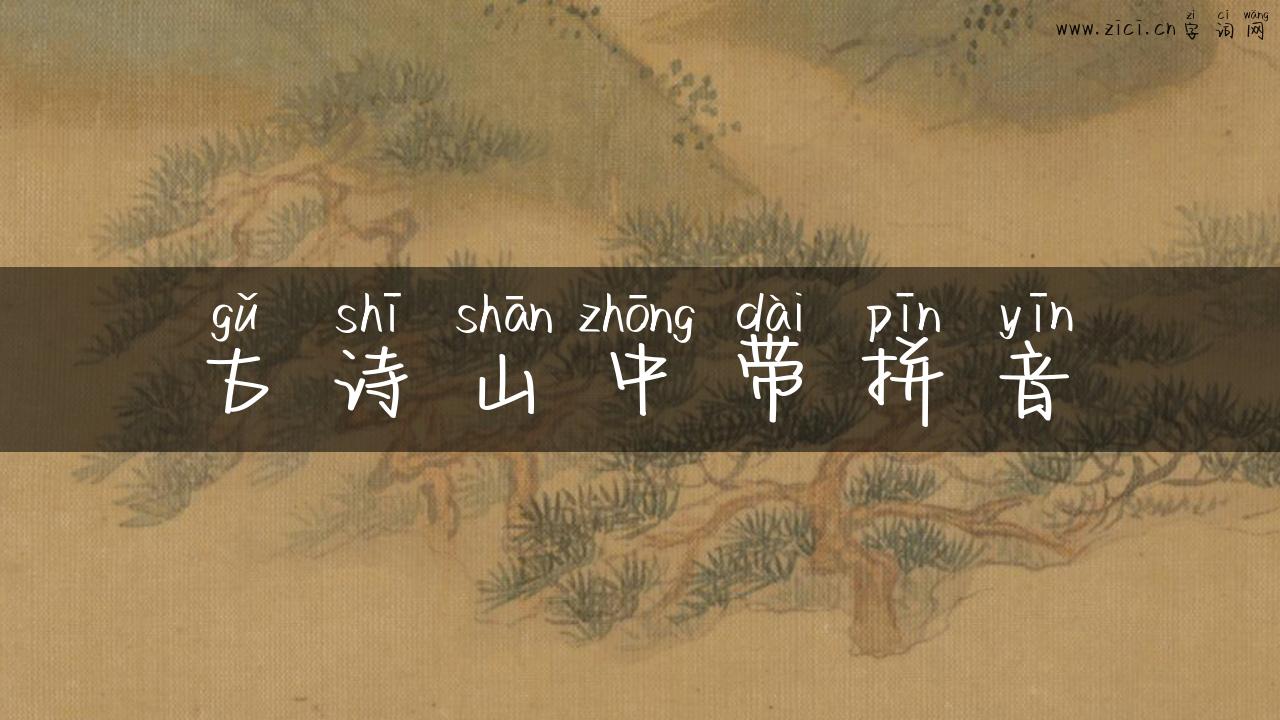 zì cí wǎng
www.zici.cn 字词网
gǔ shī shān zhōng dài pīn yīn
古诗山中带拼音